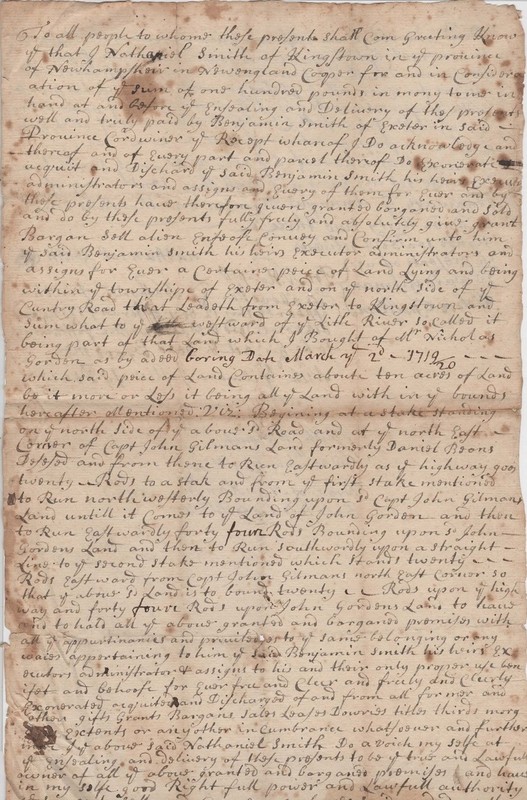 To all people to whome these presents shall Com Greeting Know
ye that I Nathaniel Smith of Kingstown in ye province
of Newhampsheir in Newengland Cooper for and in Consider
ation of ye sum of one hundred pounds in mony to me in
hand at and before ye Ensealing and Delivery of thes presents
well and truly paid by Benjamin Smith of Exeter in said
Province Cordwiner ye Recept wharof I Do acknowledge and
thereof and of Every part and parcel therof Do Exonerate
acquit and Dischard ye said Benjamin Smith his heirs Execut
administrators and assigns and Every of them for Ever and by
these presents have therefore given granted bargoned and Sold
and do by these presents fully fruly and absolutly give grant
Bargan Sell alien Enfeofe Convey and Confirm unto him
ye said Benjamin Smith his heirs Executor administrators and
assigns for Ever a Certaine peice of Land Lying and being
within ye township of Exeter and on ye north side of ye
Cuntry Road that Leadeth from Exeter to Kingstown and
Sum what to ye westward of ye Litle River so Called it
being part of that Land which I Bought of Mr Nicholas
Gorden as by a deed boring Date March ye 2d - 1719/20
which said peice of Land Containes about ten acres of Land
be it more or Less it being all ye Land with in ye bounds
hereafter Mentioned Viz: Begining at a stake standing
on ye north Side of ye above sd Road and at ye north East
Corner of Capt John Gilmans Land formerly Daniel Beans
Desesed and from thenc to Run Eastwardly as ye highway goes
twenty Rods to a stak and from ye first stake mentioned
to Run northwesterly Bounding upon sd Capt John Gilmans
Land untill it Comes to ye Land of John Gorden and then
to Run Eastwardly forty four Rods Bounding upon sd John
Gordens Land and then to Run Southwardly upon a straight
Line to ye second stake mentioned which stands twenty
Rods Eastward from Capt John Gilmans north East Corner so
that ye above sd Land is to bound twenty Rods upon ye high
way and forty four Rods upon John Gordens Land to have
and to hold all ye above granted and barganed premises with
all ye appurtinances and priviledges to ye same belonging or any
waies appertaining to him ye said Benjamin Smith his heirs Ex
ecutors administrators & assigns to his and their only proper use ben
ifet and behoofe for Ever free and Cleer and freely and Cleerly
Exonerated acquited and Discharged of and from all former and
other gifts Grants Bargans sales Leases Dowries titles thirds morg
Extents or any other in Cumbrance whatsoever and further
ye above said Nathaniel Smith Do avoich my self at
ye Ensealing and delivery of these presents to be ye true and Lawfull
owner of all ye above granted and barganed premises and have
in my selfe good Right full power and Lawfull authority